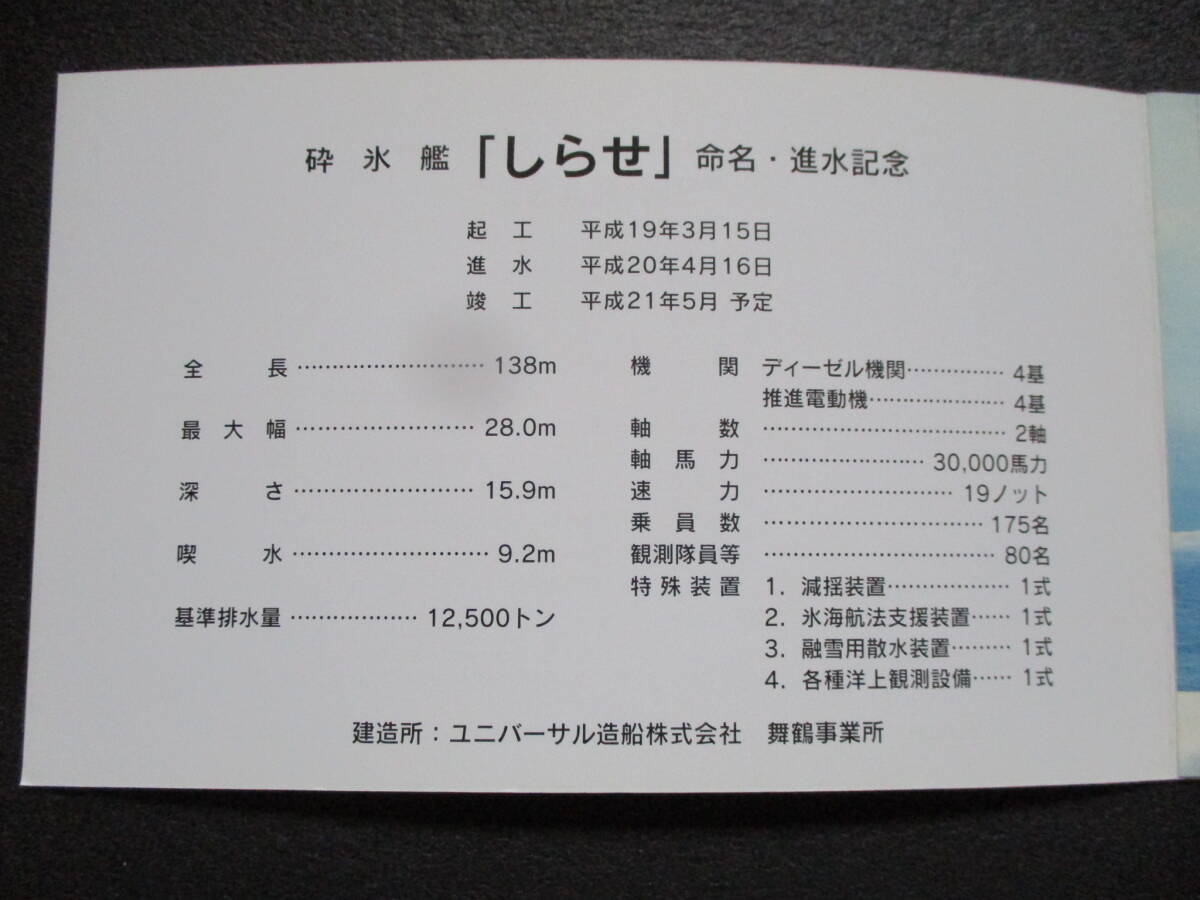 砕氷艦「しらせ」命名・進水記念
起工 平成19年3月15日
進水 平成20年4月16日
竣工 平成21年5月 予定
全長…………………138m
最大幅………………28.0m
深さ………………15.9m
喫水…………………9.2m
基準排水量………………12,500トン
機関 ディーゼル機関……………4基
推進電動機…………………4基
軸数………………………2軸
軸馬力………………30,000馬力
速力…………………19ノット
乗員数……………………175名
観測隊員等……………………80名
特殊装置 1. 減揺装置………………1式
2. 氷海航法支援装置……1式
3. 融雪用散水装置………1式
4. 各種洋上観測設備……1式
建造所：ユニバーサル造船株式会社 舞鶴事業所